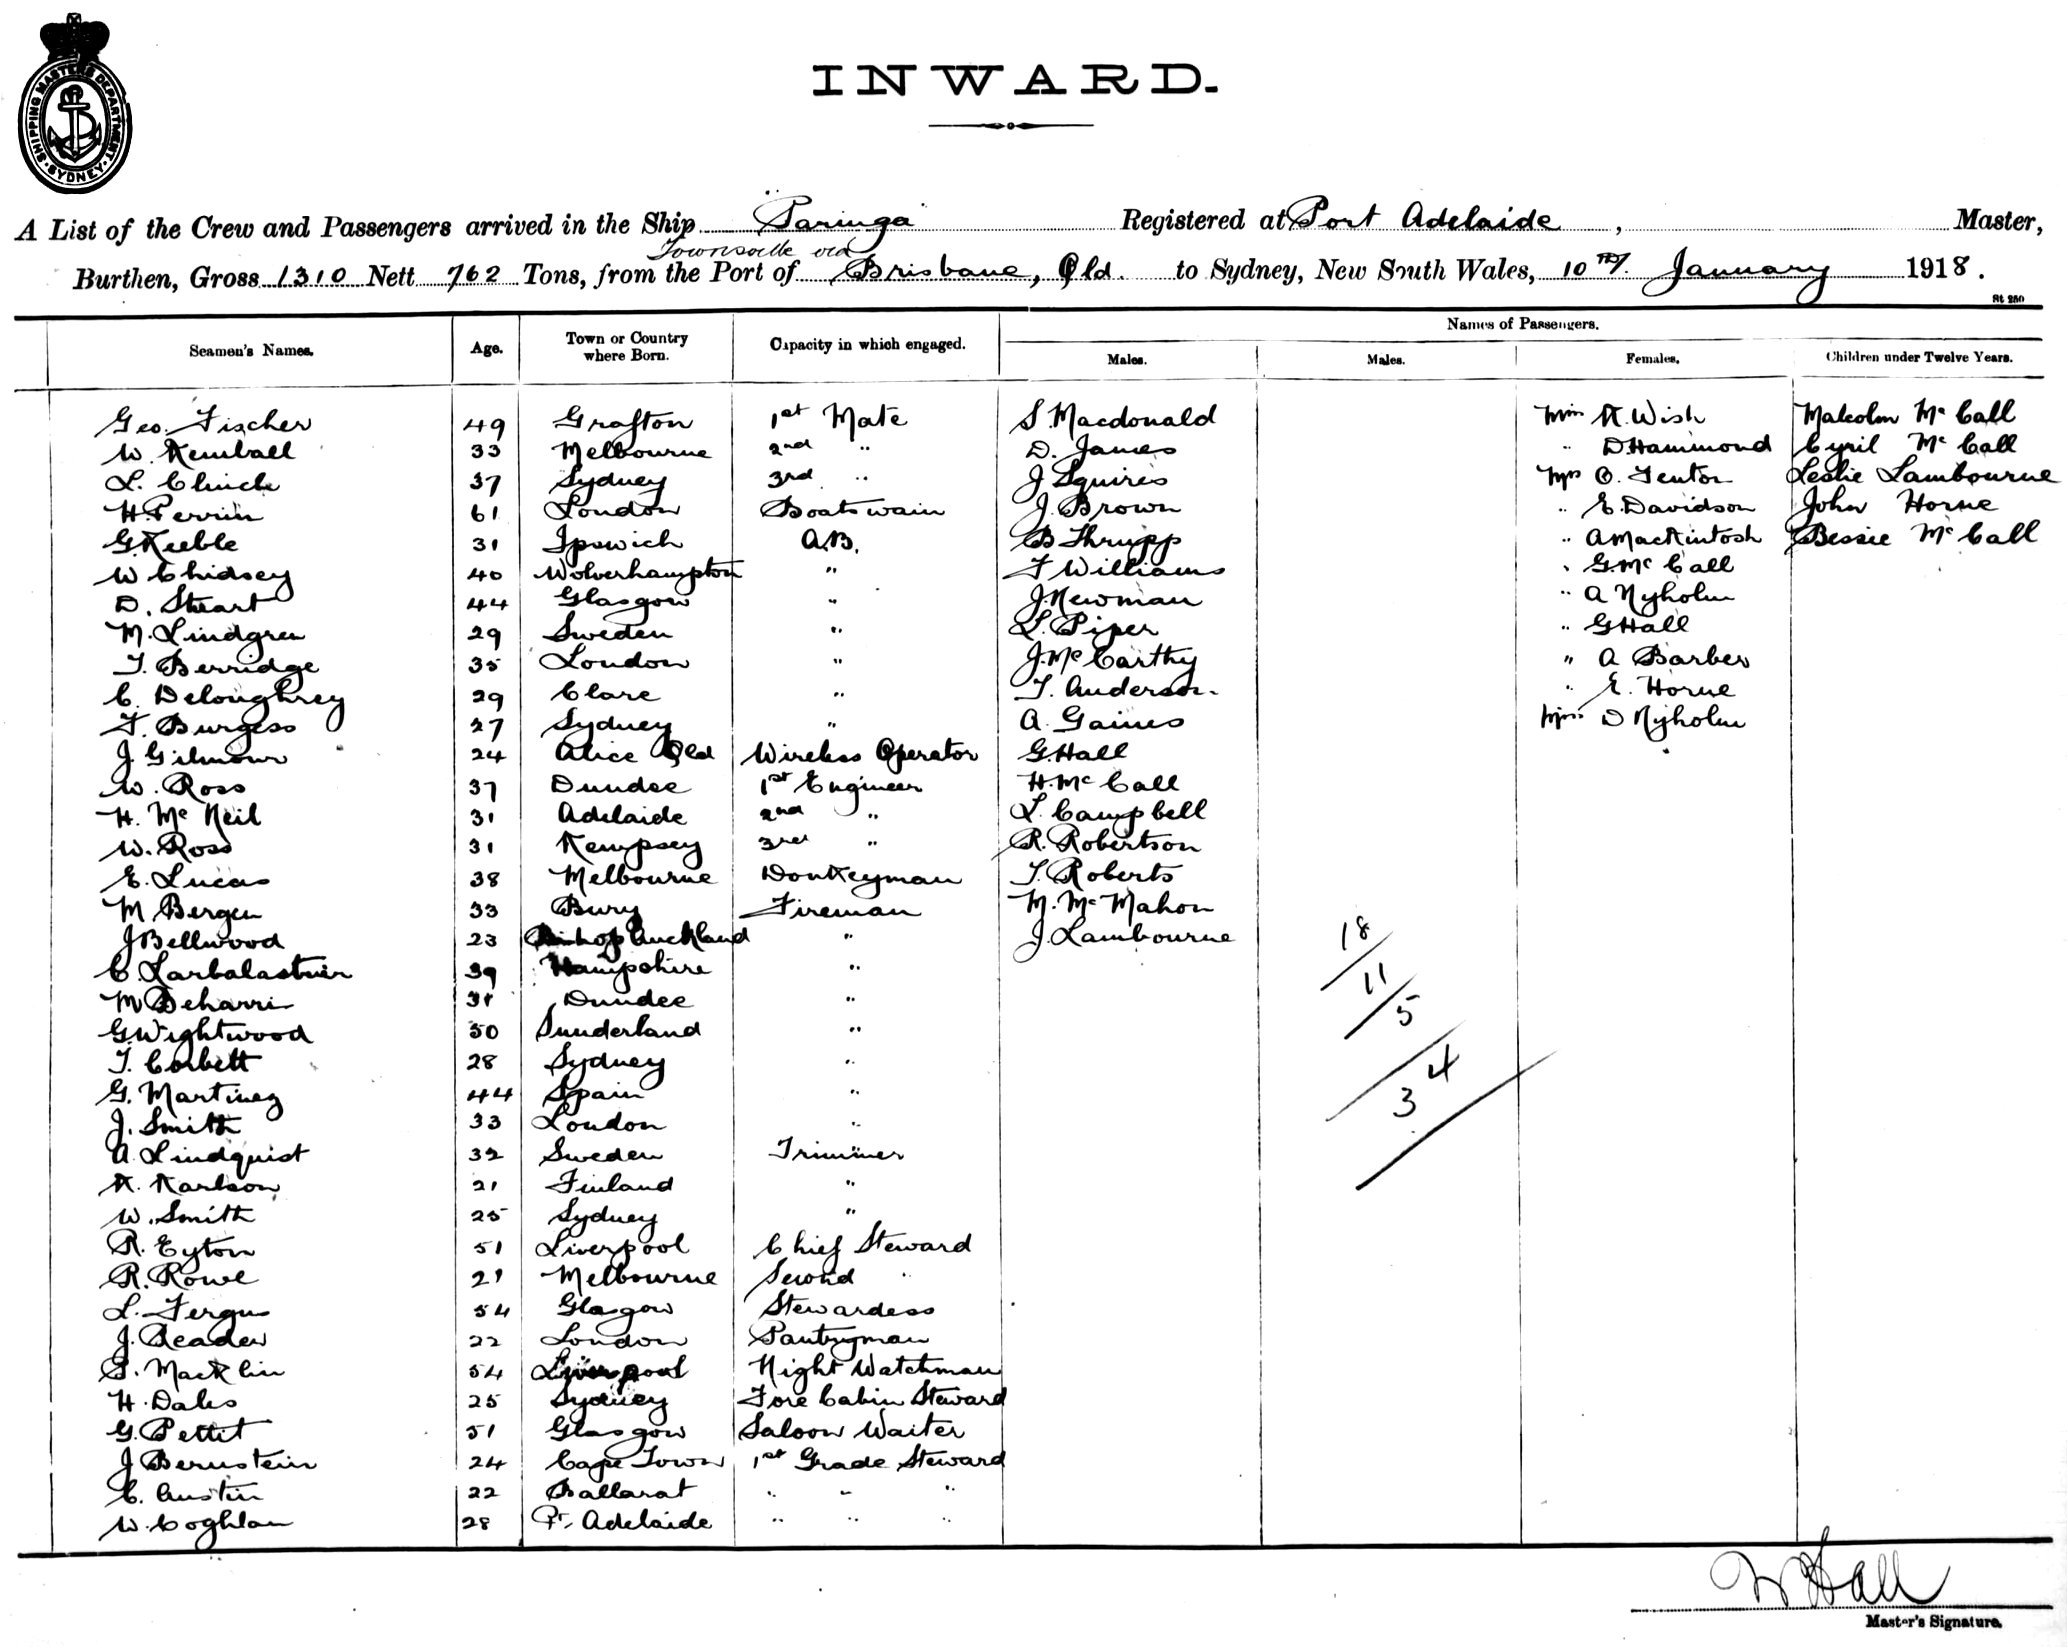 SHIPPING MASTERS DEPARTMENT. SYDNEY
INWARD.
A List of the Crew and Passengers arrived in the Ship Paringa Registered at Port Adelaide, Master,
Townsville
Burthen, Gross 1310 Nett 762 Tons, from the Port of Brisbane, Qld. to Sydney, New South Wales, 10th January 1918.
St 250
Names of Passengers.
Seamen's Names. Age. Town or Country where Born. Capacity in which engaged. Males. Males. Females. Children under Twelve Years.
Geo. Fischer 49 Grafton 1st Mate S. Macdonald Miss K. Wish Malcolm Mc Call
W. Kemball 33 Melbourne 2nd " D. James " D Hammond Cyril Mc Call
L. Clinch 37 Sydney 3rd " J Squires Mrs O. Fenton Leslie Lambourne
H. Perrin 61 London Boatswain J. Brown " E. Davidson John Horne
G. Keeble 31 Ipswich A.B. B Thrupp " A MacKintosh Bessie Mc Call
W Chidsey 40 Wolverhampton " F Williams " G. Mc Call
D. Stuart 44 Glasgow " J. Newman " A Nyholm
M. Lindgren 29 Sweden " L. Piper " G Hall
T. Berridge 35 London " J. Mc Carthy " A Barber
C. Deloughrey 29 Clare " T. Anderson. " E. Horne
F. Burgess 27 Sydney " A. Gaines Miss D Nyholm
J. Gilmour 24 Alice Qld Wireless Operator G. Hall
W. Ross 37 Dundee 1st Engineer H. Mc Call
H. Mc Neil 31 Adelaide 2nd " L. Campbell
W. Ross 31 Kempsey 3rd " R. Robertson
E. Lucas 38 Melbourne Donkeyman T. Roberts
M Bergen 33 Bury Fireman M. Mc Mahon
J Bellwood 23 Bishop Auckland " J. Lambourne
C. Larbalastier 39 Hampshire "
M Beharri 31 Dundee "
G. Wightwood 50 Sunderland "
T. Corbett 28 Sydney "
G. Martinez 44 Spain "
J. Smith 33 London "
A. Lindquist 32 Sweden Trimmer
K. Karlson 21 Finland "
W. Smith 25 Sydney "
R. Eyton 51 Liverpool Chief Steward
R. Rowe 21 Melbourne Second "
L. Fergus 54 Glasgow Stewardess
J. Reader 22 London Pantryman
S. Macklin 54 Liverpool Night Watchman
H. Dales 25 Sydney Fore Cabin Steward
G. Pettit 51 Glasgow Saloon Waiter
J Bernstein 24 Cape Town 1st Grade Steward
C. Austin 22 Ballarat " " "
W. Coghlan 28 Pt. Adelaide " " "
18
11
5
34
W Hall
Master's Signature.